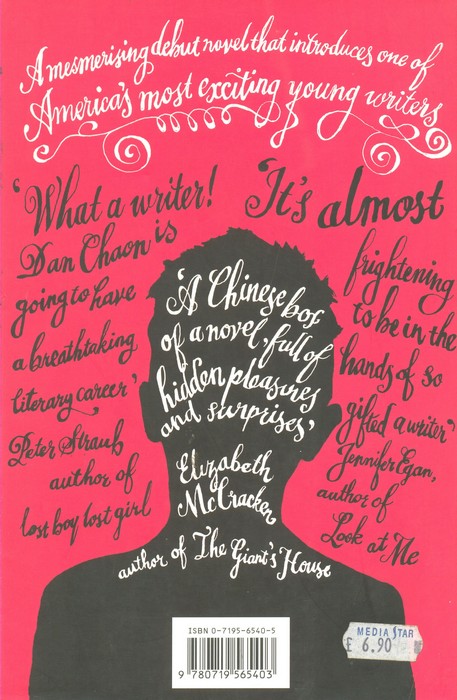 A mesmerising debut novel that introduces one of
America's most exciting young writers
'What a writer!
Dan Chaon is
going to have
a breathtaking
literary career'
Peter Straub
author of
lost boy lost girl
'It's almost
frightening
to be in the
hands of so
gifted a writer'
Jennifer Egan,
author of
Look at Me
'A Chinese box
of a novel, full of
hidden pleasures
and surprises'
Elizabeth
McCracken,
author of The Giant's House
ISBN 0-7195-6540-5
9 780719 565403
MEDIA STAR
£ 6.90